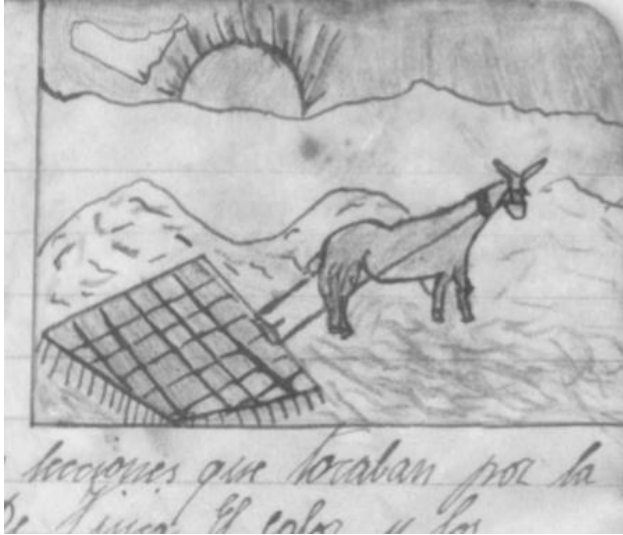 lecciones que tocaban por la
De Física El calor y los